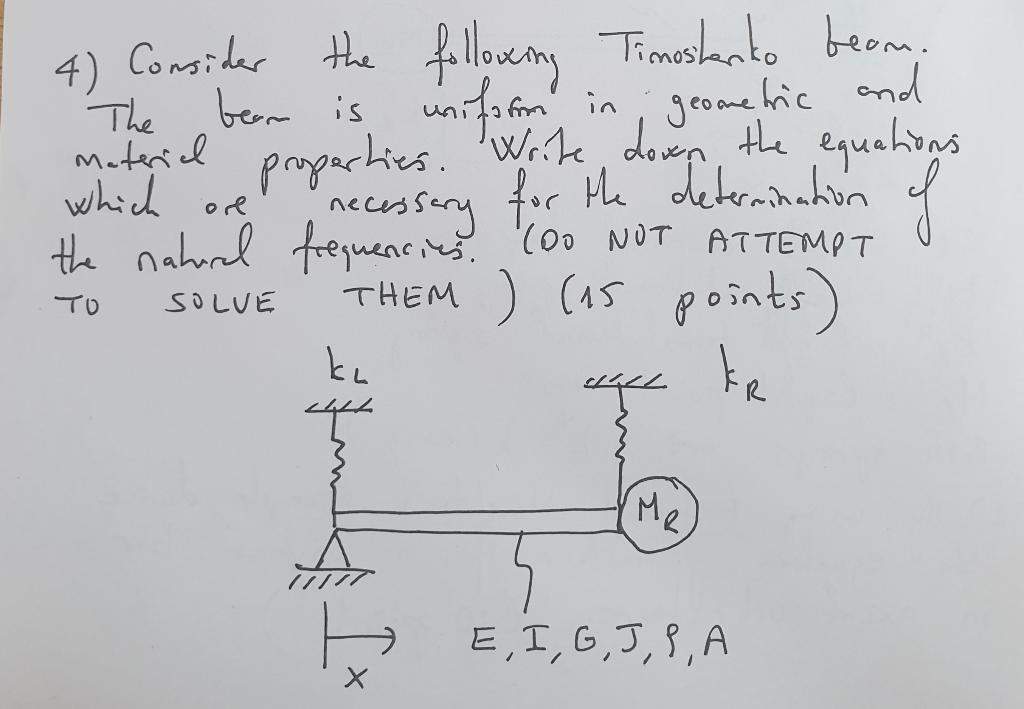 4) Consider the following Timoshenko beam.
The beam is uniform in geometric and
material properties. Write down the equations
which are necessary for the determination of
the natural frequencies. (DO NOT ATTEMPT
TO SOLVE THEM) (15 points)
kL
kR
MR
E, I, G, J, ρ, A
x